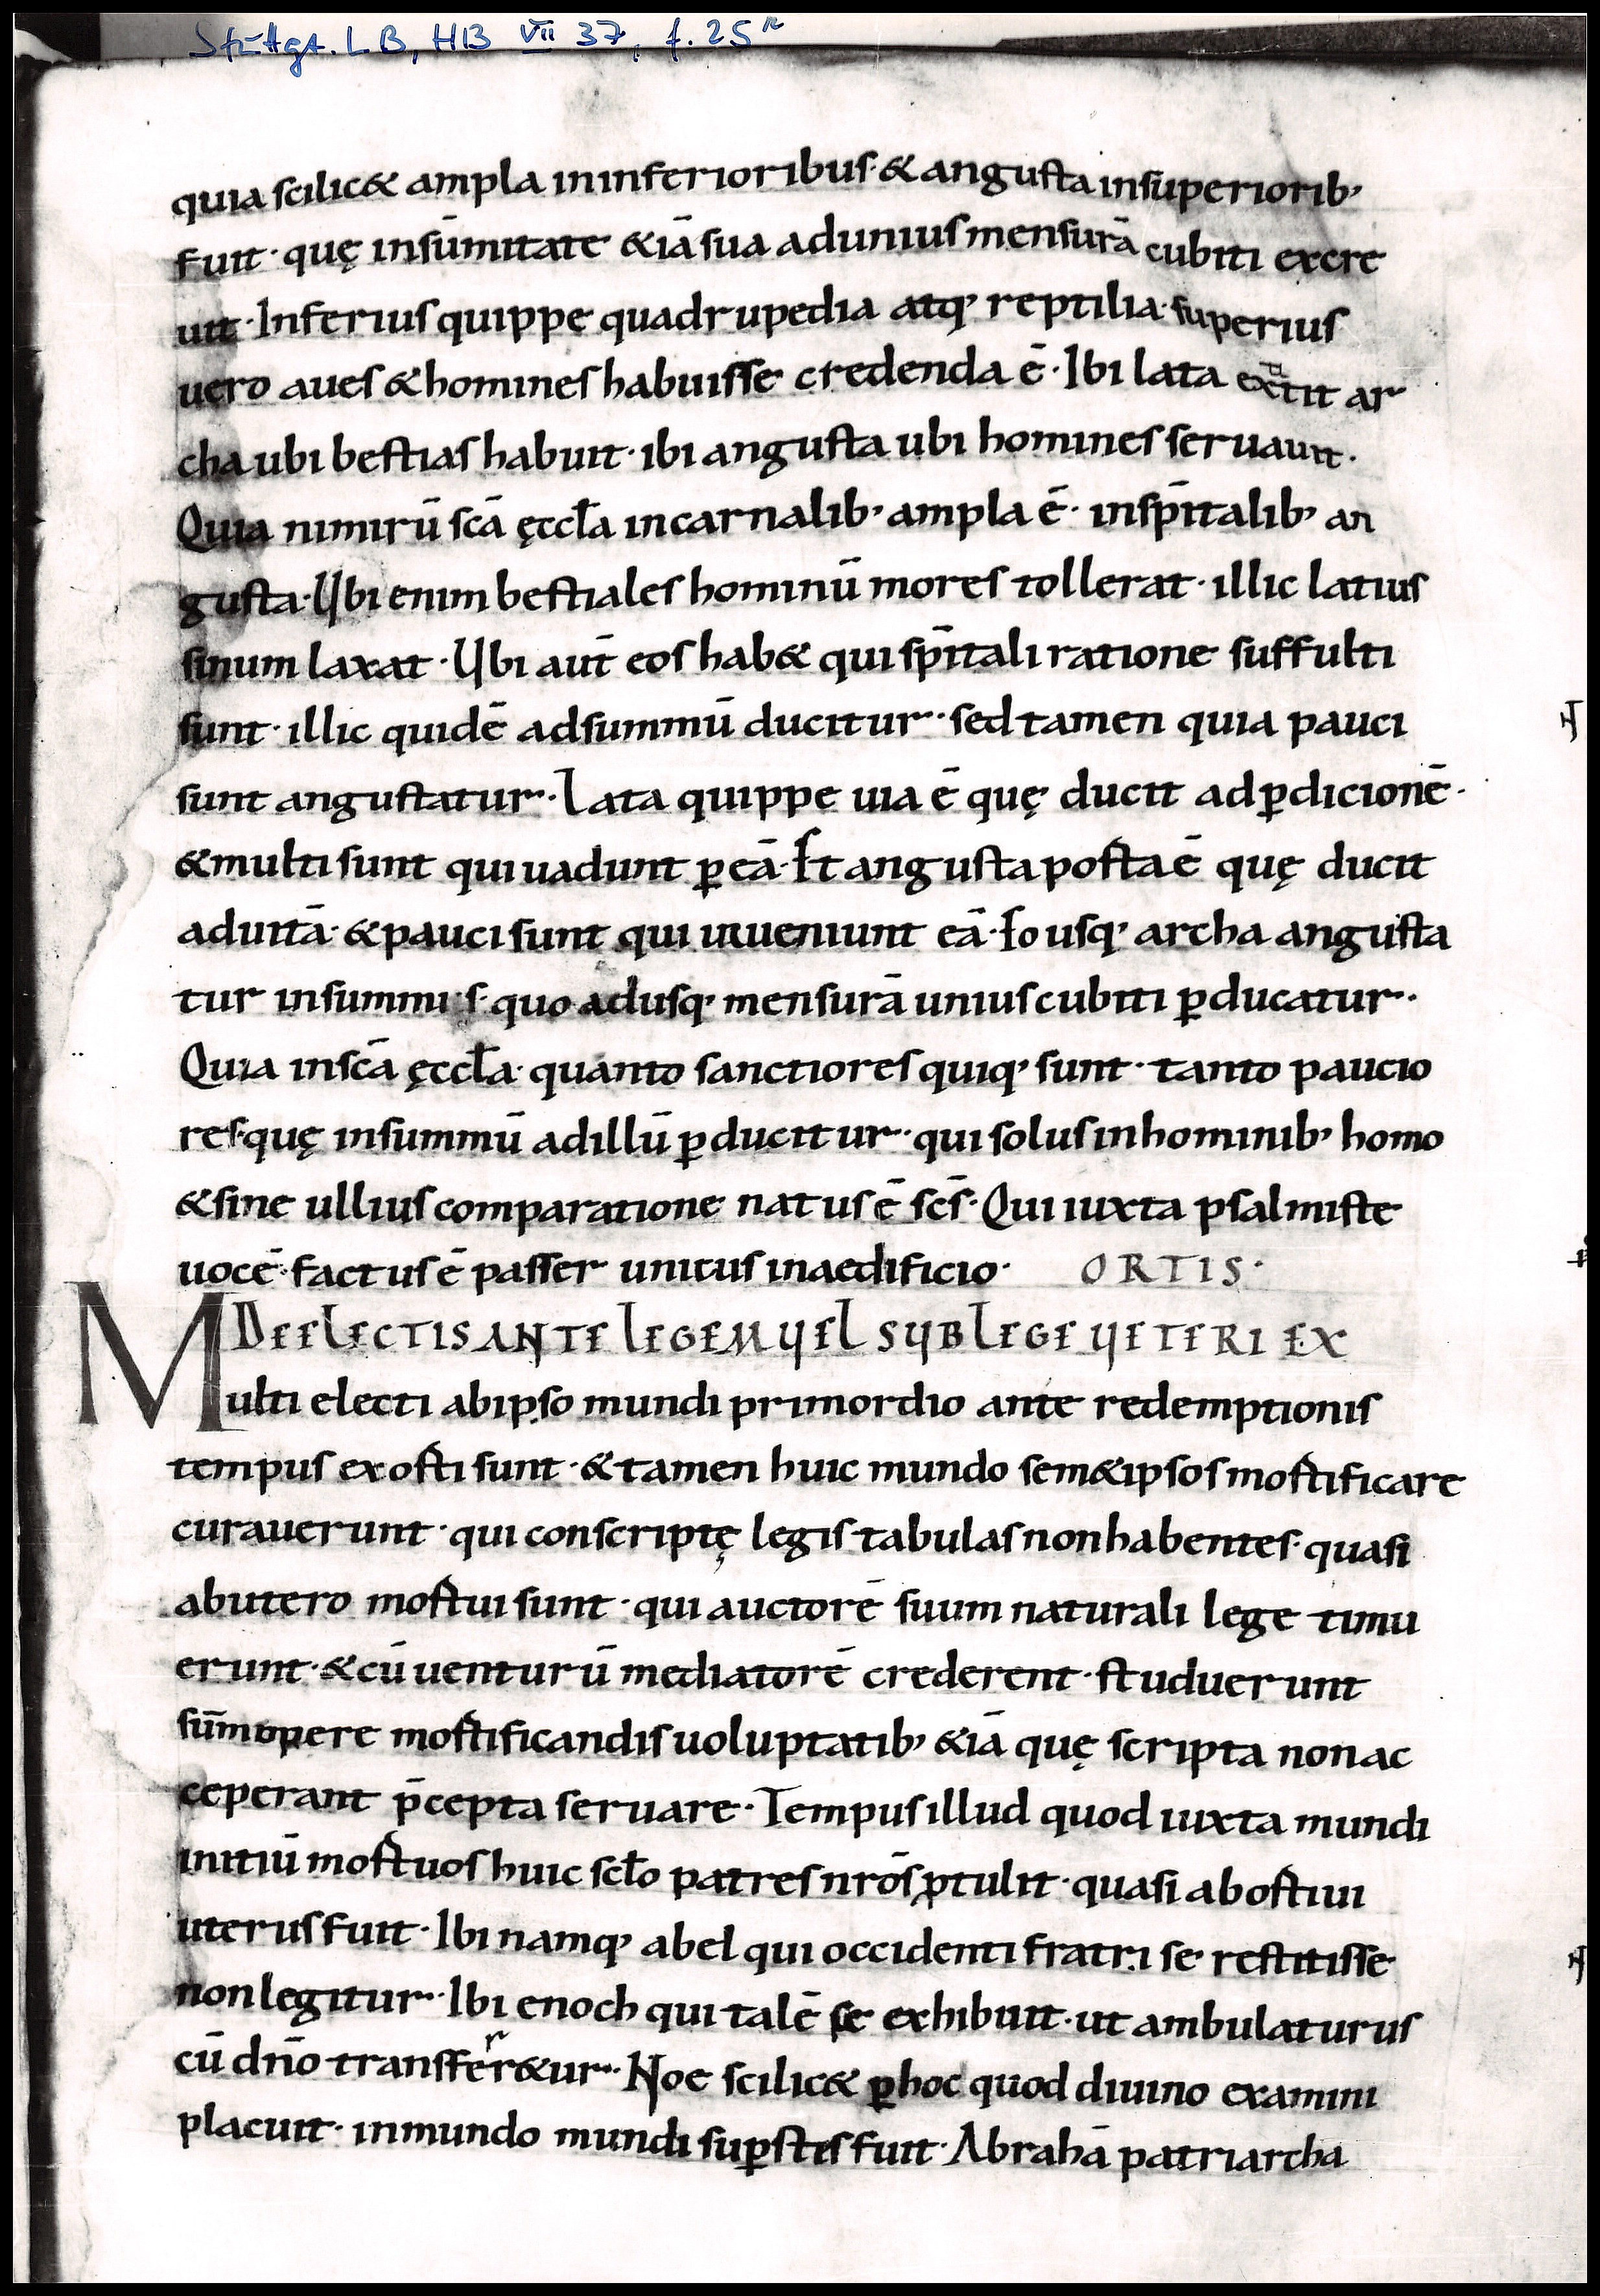 Stuttga. LB, HB VII 37, f. 25r
quia scilic& ampla ininferioribus· & angusta insuperiorib;
fuit· quę insūmitate &iā sua adunius mensurā cubiti excre
uit· Inferius quippe quadrupedia atq; reptilia· superius
uero aues & homines habuisse credenda ē· Ibi lata extitit ar
cha ubi bestias habuit· ibi angusta ubi homines seruauit·
Quia nimirū scā ęccła incarnalib; ampla ē· insp̄italib; an
gusta· Ubi enim bestiales hominū mores tollerat· illic latius
sinum laxat· Ubi aut̄ eos hab& qui sp̄itali ratione suffulti
sunt· illic quidē adsummū ducitur· sed tamen quia pauci
sunt angustatur· Lata quippe uia ē quę ducit adꝑdicionē·
&multi sunt qui uadunt ꝑ eā· Et angusta porta ē quę ducit
aduitā· &pauci sunt qui inueniunt eā· Eo usq; archa angusta
tur insummis· quo adusq; mensurā unius cubiti ꝑducatur·
Quia inscā ęccła· quanto sanctiores quiq; sunt· tanto paucio
res· quę insummū adillū ꝑducitur· qui solus inhominib; homo
&sine ullius comparatione natus ē scs̄· Qui iuxta psalmiste
uocē· factus ē passer unicus inaedificio· ORTIS·
DEELECTIS ANTE LEGEM UEL SUB LEGE UETERI EX
Multi electi abipso mundi primordio ante redemptionis
tempus exorti sunt· & tamen huic mundo sem&ipsos mortificare
curauerunt· qui conscriptę legis tabulas nonhabentes· quasi
abutero mortui sunt· qui auctorē suum naturali lege timu
erunt· &cū uenturū mediatorē crederent· studuerunt
sūmopere mortificandis uoluptatib; &iā quę scripta nonac
ceperant p̄cepta seruare· Tempus illud quod iuxta mundi
initiū mortuos huic scło patres nrōs ꝓtulit· quasi abortiui
uterus fuit· Ibi namq; abel qui occidenti fratri se restitisse
non legitur· Ibi enoch qui talē se exhibuit· ut ambulaturus
cū dn̄o transferr&ur· Noe scilic& ꝑ hoc quod diuino examini
placuit· inmundo mundi suꝑstes fuit· Abrahā patriarcha